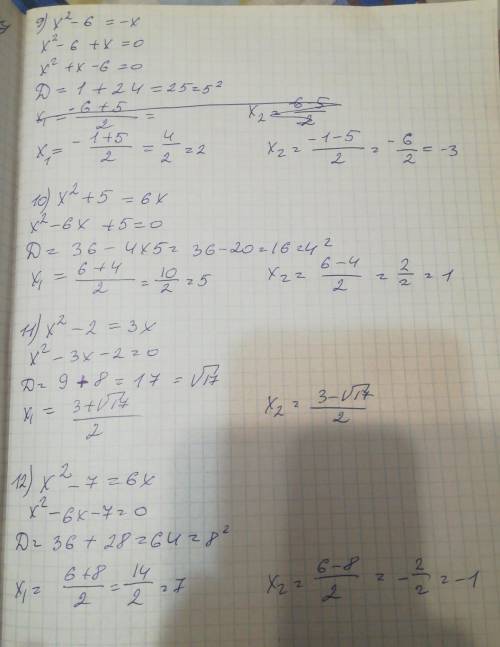 9) x² - 6 = -x
x² - 6 + x = 0
x² + x - 6 = 0
D = 1 + 24 = 25 = 5²
x₁ = -6+5/2 = x₂ = 6-5/2
x₁ = -1+5/2 = 4/2 = 2 x₂ = -1-5/2 = -6/2 = -3
10) x² + 5 = 6x
x² - 6x + 5 = 0
D = 36 - 4x5 = 36 - 20 = 16 = 4²
x₁ = 6+4/2 = 10/2 = 5 x₂ = 6-4/2 = 2/2 = 1
11) x² - 2 = 3x
x² - 3x - 2 = 0
D = 9 + 8 = 17 = √17
x₁ = 3+√17/2 x₂ = 3-√17/2
12) x² - 7 = 6x
x² - 6x - 7 = 0
D = 36 + 28 = 64 = 8²
x₁ = 6+8/2 = 14/2 = 7 x₂ = 6-8/2 = -2/2 = -1